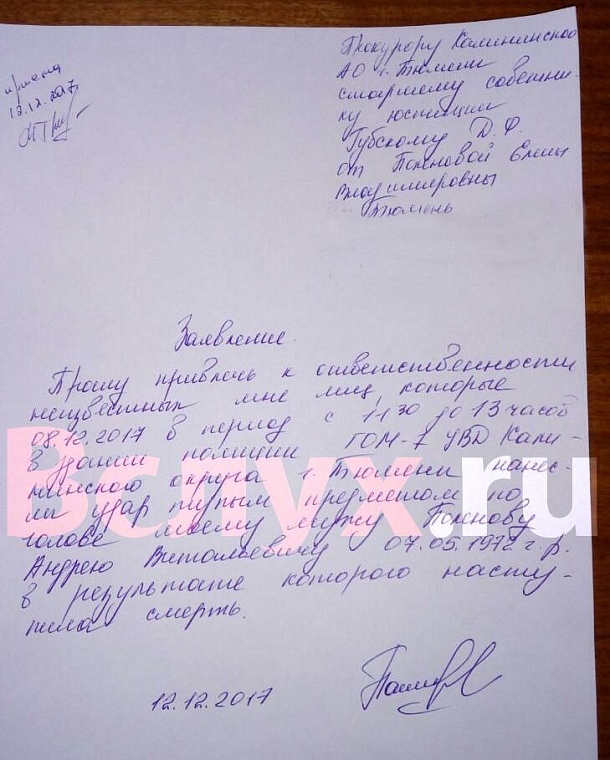 12.12.2017
Прокурору Калининского
АО г. Тюмени
старшему советни-
ку юстиции
Губскому Д. Ф.
от Поповой Елены
Владимировны
Тюмень
Заявление.
Прошу привлечь к ответственности
неизвестных мне лиц, которые
08.12.2017 в период с 11 30 до 13 часов
в здании полиции ГОМ-7 УВД Кали-
нинского округа г. Тюмени нанес-
ли удар тупым предметом по
голове моему мужу
Андрею Витальевичу 07.05.1972 г.р.
в результате которого насту-
пила смерть.
12.12.2017
Вслух.ru